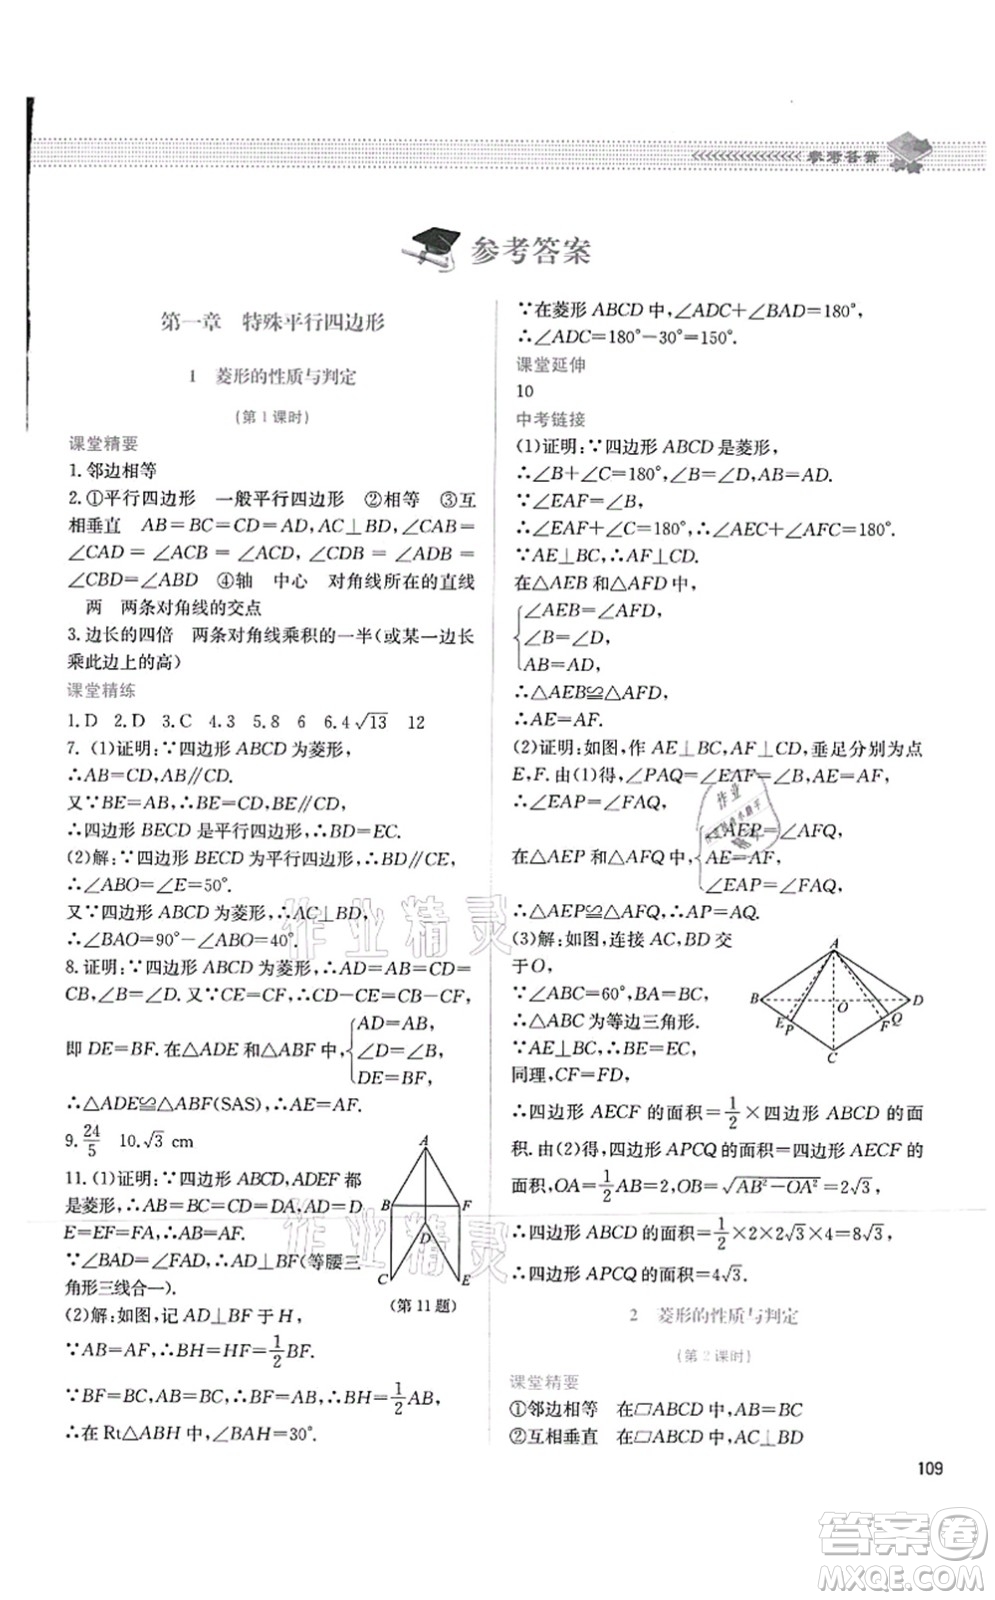 参考答案
参考答案
第一章 特殊平行四边形
1 菱形的性质与判定
(第1课时)
课堂精要
1.邻边相等
2.①平行四边形 一般平行四边形 ②相等 ③互
相垂直 AB=BC=CD=AD,AC⊥BD,∠CAB=
∠CAD=∠BCA=∠ACD,∠CDB=∠ADB=
∠CBD=∠ABD ④轴 中心 对角线所在的直线
两 两条对角线的交点
3.边长的四倍 两条对角线乘积的一半(或某一边长
乘此边上的高)
课堂精练
1.D 2.D 3.C 4.3 5.8 6 6.4√13 12
7.(1)证明:∵四边形ABCD为菱形,
∴AB=CD,AB∥CD.
又∵BE=AB,∴BE=CD,BE∥CD.
∴四边形BECD是平行四边形,∴BD=EC.
(2)解:∵四边形BECD为平行四边形,∴BD∥CE.
∴∠ABO=∠E=50°.
又∵四边形ABCD为菱形,∴AC⊥BD,
∴∠BAO=90°-∠ABO=40°.
8.证明:∵四边形ABCD为菱形,∴AD=AB=CD=
CB,∠B=∠D.又∵CE=CF,∴CD-CE=CB-CF,
即DE=BF.在△ADE和△ABF中,{AD=AB,
∠D=∠B,
DE=BF,
∴△ADE≌△ABF(SAS),∴AE=AF.
9.24/5 10.√3 cm
11.(1)证明:∵四边形ABCD,ADEF都
是菱形,∴AB=BC=CD=DA,AD=D
E=EF=FA,∴AB=AF.
∵∠BAD=∠FAD,∴AD⊥BF(等腰三
角形三线合一).
A
B F
D
C E
(第11题)
(2)解:如图,记AD⊥BF于H,
∵AB=AF,∴BH=HF=1/2BF.
∵BF=BC,BC=AB,∴BH=1/2AB,
∴在Rt△ABH中,∠BAH=30°.
∵在菱形ABCD中,∠ADC+∠BAD=180°,
∴∠ADC=180°-30°=150°.
课堂延伸
10
中考链接
(1)证明:∵四边形ABCD是菱形,
∴∠B+∠C=180°,∠B=∠D,AB=AD.
∵∠EAF=∠B,
∴∠EAF+∠C=180°,∴∠AEC+∠AFC=180°.
∵AE⊥BC,∴AF⊥CD.
在△AEB和△AFD中,
{∠AEB=∠AFD,
∠B=∠D,
AB=AD,
∴△AEB≌△AFD,
∴AE=AF.
(2)证明:如图,作AE⊥BC,AF⊥CD,垂足分别为点
E,F.由(1)得,∠PAQ=∠EAF=∠B,AE=AF,
∴∠EAP=∠FAQ,
在△AEP和△AFQ中,{∠AEP=∠AFQ,
AE=AF,
∠EAP=∠FAQ,
∴△AEP≌△AFQ,∴AP=AQ.
(3)解:如图,连接AC,BD交
于O,
∵∠ABC=60°,BA=BC,
∴△ABC为等边三角形.
∵AE⊥BC,∴BE=EC.
同理,CF=FD,
A
B O D
E P F Q
C
∴四边形AECF的面积=1/2×四边形ABCD的面
积.由(2)得,四边形APCQ的面积=四边形AECF的
面积,OA=1/2AB=2,OB=√(AB²-OA²)=2√3,
∴四边形ABCD的面积=1/2×2×2√3×4=8√3,
∴四边形APCQ的面积=4√3.
2 菱形的性质与判定
(第2课时)
课堂精要
①邻边相等 在▱ABCD中,AB=BC
②互相垂直 在▱ABCD中,AC⊥BD
109
作业精灵
作业精灵
答案卷
MXQE.COM